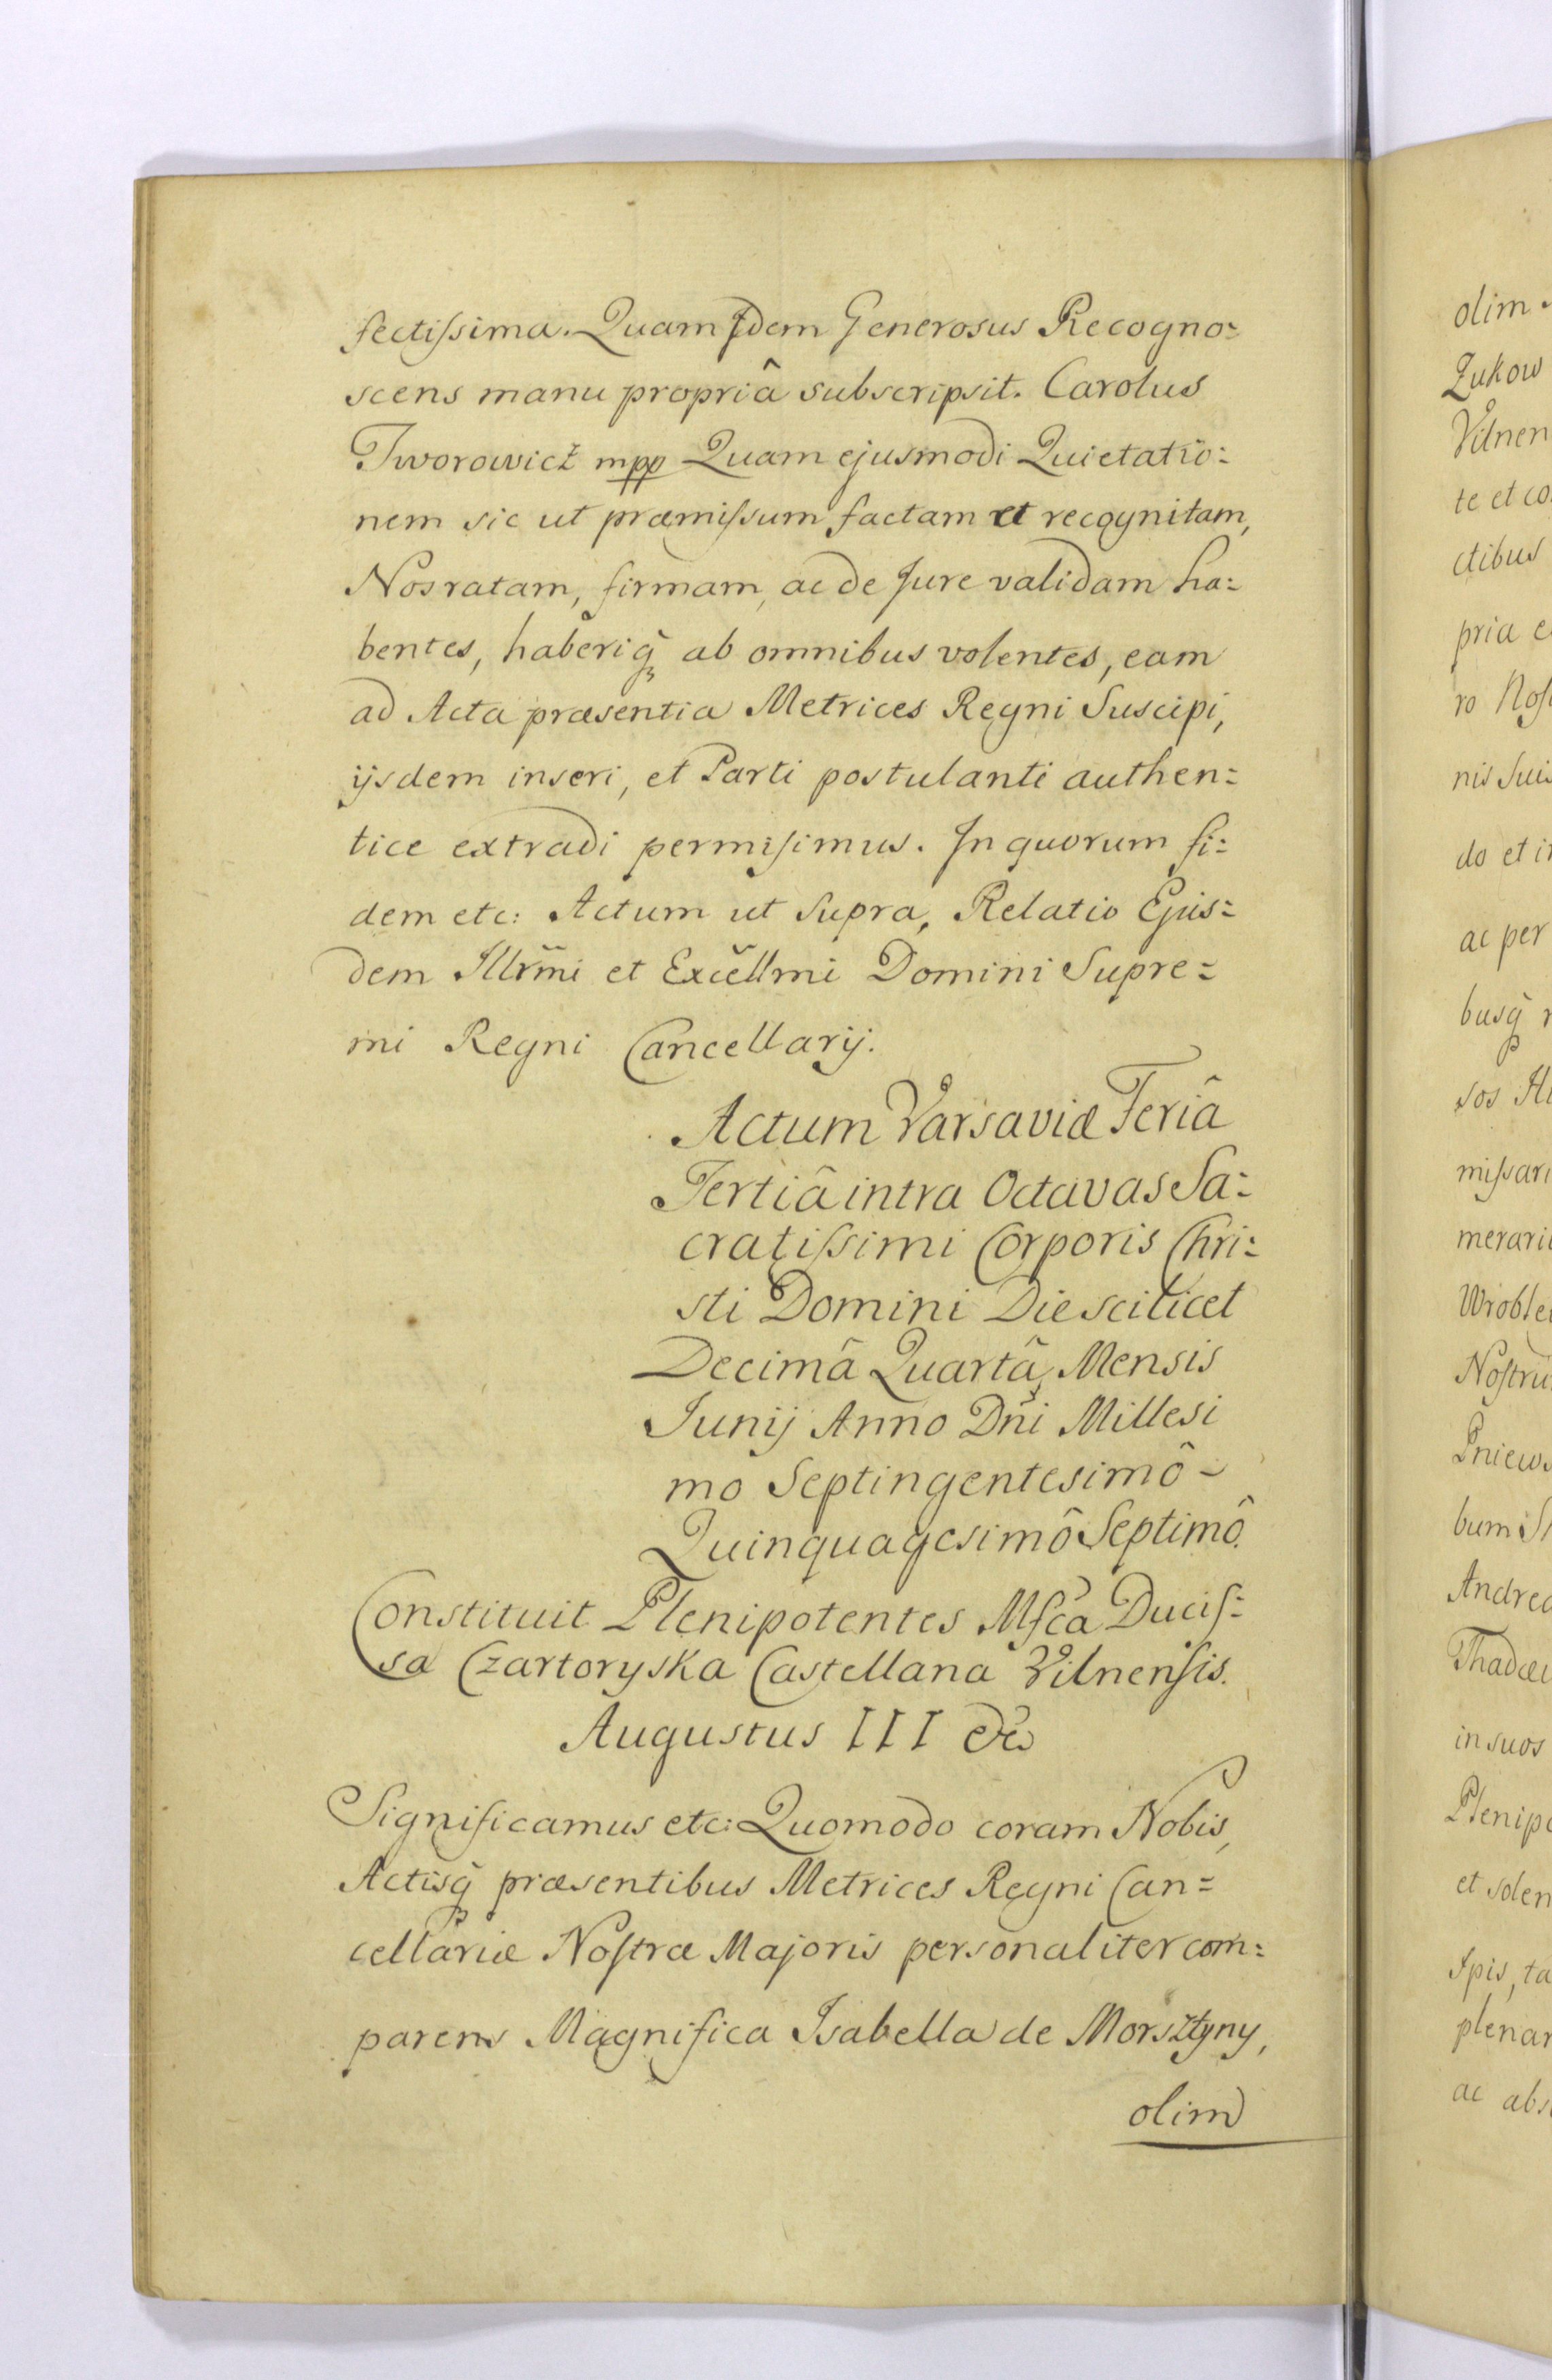 fectiſsima. Quam Idem Generosus Recogno=
scens manu propriâ subscripsit. Carolus
Tworowicz mpp Quam ejusmodi Quietatio=
nem sic ut præmiſsum factam et recognitam,
Nos ratam, firmam, ac de Jure validam ha=
bentes, haberiq̃ ab omnibus volentes, eam
ad Acta præsentia Metrices Regni Suscipi,
ijsdem inseri, et Parti postulanti authen=
tice extradi permiſimus. In quorum fi=
dem etc: Actum ut Supra, Relatio Ejus=
dem Illr̃mi et Excẽllmi Domini Supre=
mi Regni Cancellarij.
Actum Varsaviæ Feriâ
Tertiâ intra Octavas Sa=
cratiſsimi Corporis Chri=
sti Domini Die scilicet
Decimâ Quartâ Mensis
Junij Anno Dñi Millesi
mo Septingentesimô -
Quinquagesimô Septimô.
Constituit Plenipotentes Mſca Duciſ=
sa Czartoryska Castellana Vilnenſis.
Augustus III &c
Significamus etc: Quomodo coram Nobis,
Actisq̃ præsentibus Metrices Regni Can=
cellariæ Noſtræ Majoris personaliter com=
parens Magnifica Isabella de Morsztyny,
olim
olim
Zukow
Vilnen
te et co
ctibus
pria e
ro Noſ
nis Suis
do et i
ac per
busq̃
sos Il
miſsari
merari
Wroble
Noſtru
Pniews
bum S
Andrea
Thadæu
in suos
Plenipo
et solen
Ipis, ta
plenar
ac abs